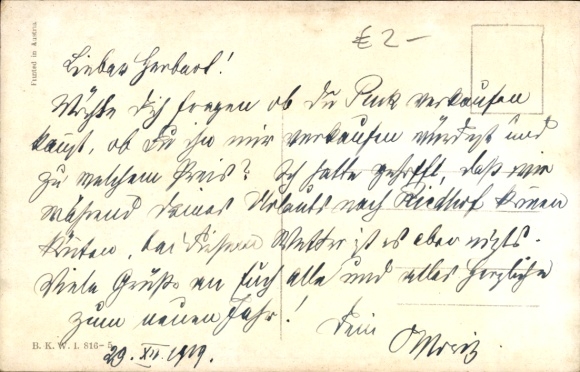 £ 2-
Printed in Austria
Lieber Herbert!
Möchte dich fragen ob du Puck verkaufen
kannst, ob du ihn mir verkaufen würdest und
zu welchem Preis? Ich hatte gehofft, daß wir
während deines Urlaubs nach Riedhof
bei diesem Wetter ist es aber nichts.
Viele Grüße an Euch alle und alles Herzliche
zum neuen Jahr!
Dein
Moriz
B. K. W. I. 816-5
29. XII. 1919.